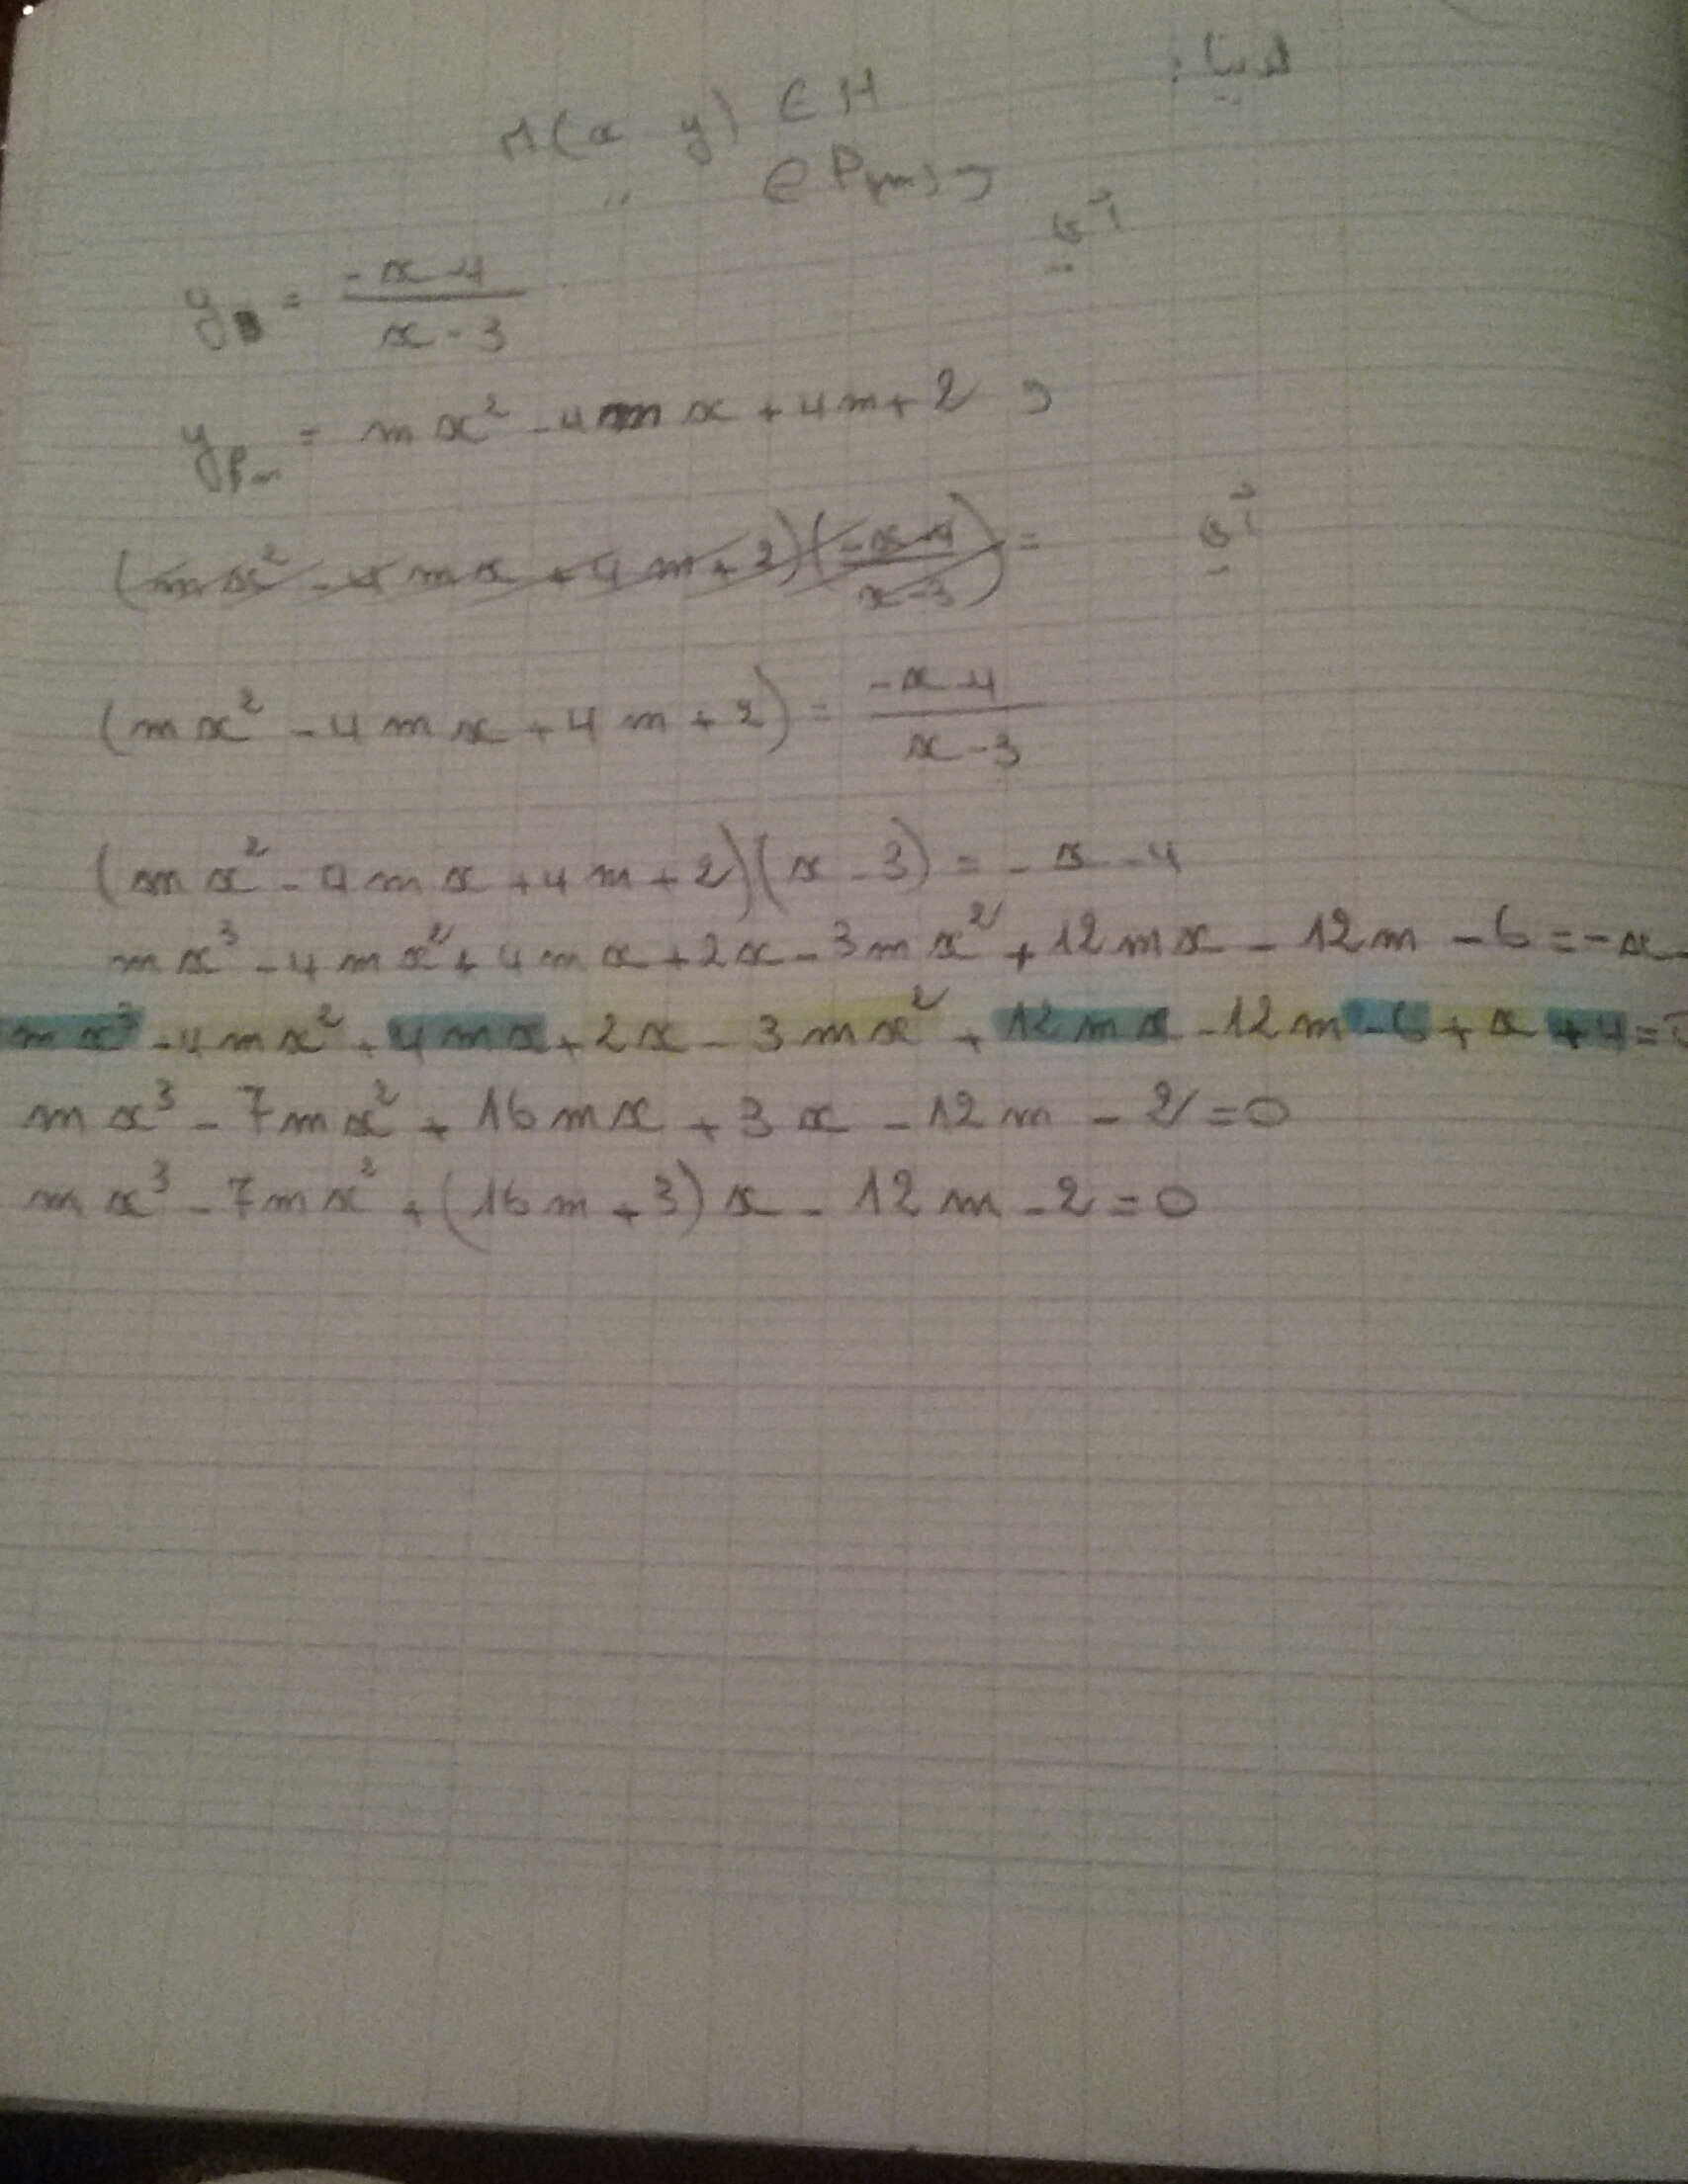 لدينا :
M(x y) ∈ H
" ∈ P(m) و
أي
y = (-x-4)/(x-3)
y_Pm = mx² -4mx +4m+2 و
(mx² -4mx +4m+2)((-x-4)/(x-3)) =
أي
(mx² -4mx +4m+2) = (-x-4)/(x-3)
(mx² -4mx +4m+2)(x-3) = -x-4
mx³ -4mx² +4mx +2x -3mx² +12mx -12m -6 = -x-
mx³ -4mx² +4mx +2x -3mx² +12mx -12m -6 +x +4 = 0
mx³ -7mx² +16mx +3x -12m -2 = 0
mx³ -7mx² +(16m+3)x -12m -2 = 0